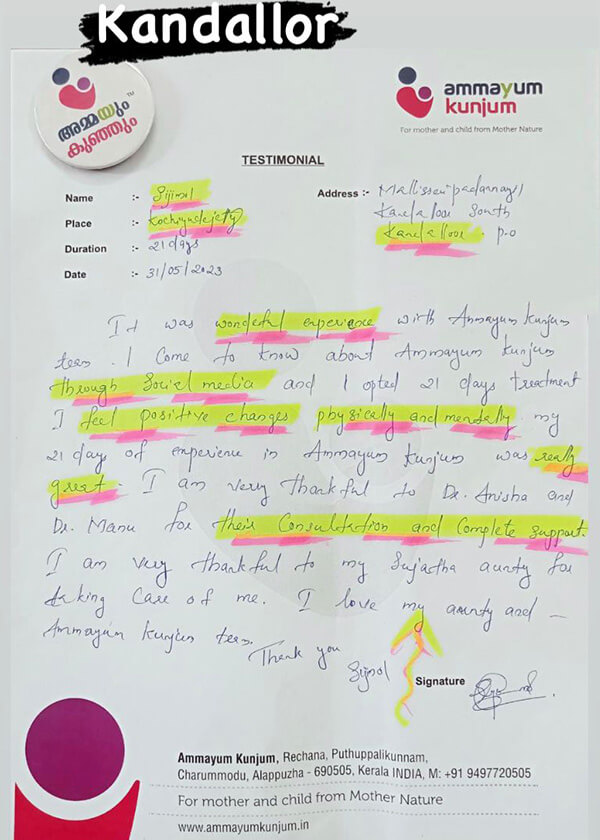 Kandallor
അമ്മയും
കുഞ്ഞും
TM
ammayum
kunjum
For mother and child from Mother Nature
TESTIMONIAL
Name :- Sijimol
Place :-
Duration :- 21 days
Date :- 31/05/2023
Address :-
Kandalloor South
Kandalloor P.O
It was wondeful experience with Ammayum Kunjum
team. I come to know about Ammayum Kunjum
through Social media and I opted 21 days treatment
I feel positive changes physically and mentally. my
21 day of experience in Ammayum Kunjum was really
great. I am very thankful to Dr. Anisha and
Dr. Manu for their Consultation and Complete support.
I am very thankful to my Sujatha aunty for
taking Care of me. I love my aunty and –
Ammayum Kunjum team.
Thank you
Sijimol
Signature
Ammayum Kunjum, Rechana, Puthuppalikunnam,
Charummodu, Alappuzha - 690505, Kerala INDIA, M: +91 9497720505
For mother and child from Mother Nature
www.ammayumkunjum.in